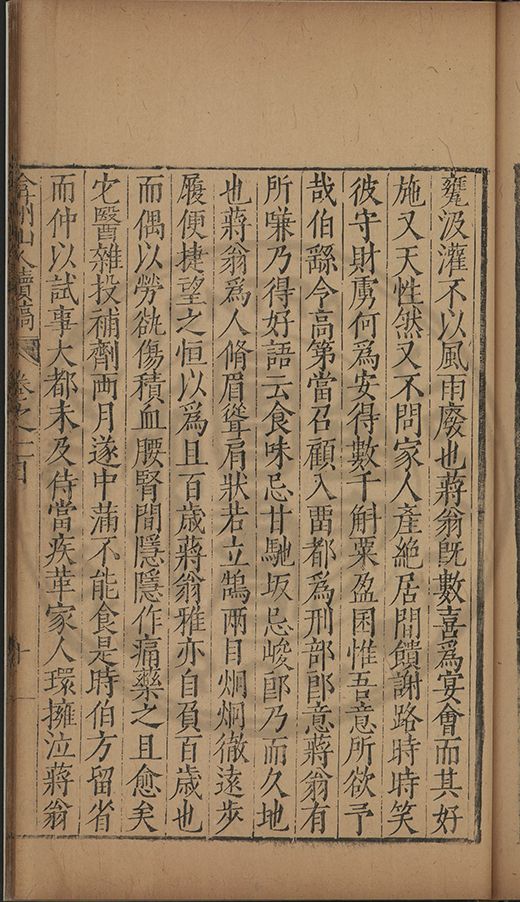 甕汲灌不以風雨廢也蔣翁旣數喜爲宴會而其好
施又天性然又不問家人產絕居間饋謝路時時笑
彼守財虜何爲安得數千斛粟盈囷惟吾意所欲予
哉伯繇令高第當召顧入畱都爲刑部郎意蔣翁有
所嗛乃得好語云食味忌甘馳坂忌峻郎乃而久地
也蔣翁爲人脩眉聳肩狀若立鵠兩目烱烱徹遠步
履便捷望之恒以爲且百歲蔣翁雅亦自負百歲也
而偶以勞欿傷積血腰腎間隱隱作痛藥之且愈矣
它醫雜投補劑兩月遂中滿不能食是時伯方留省
而仲以試事大都未及侍當疾革家人環擁泣蔣翁
弇州山人續稿 卷之一百 十一